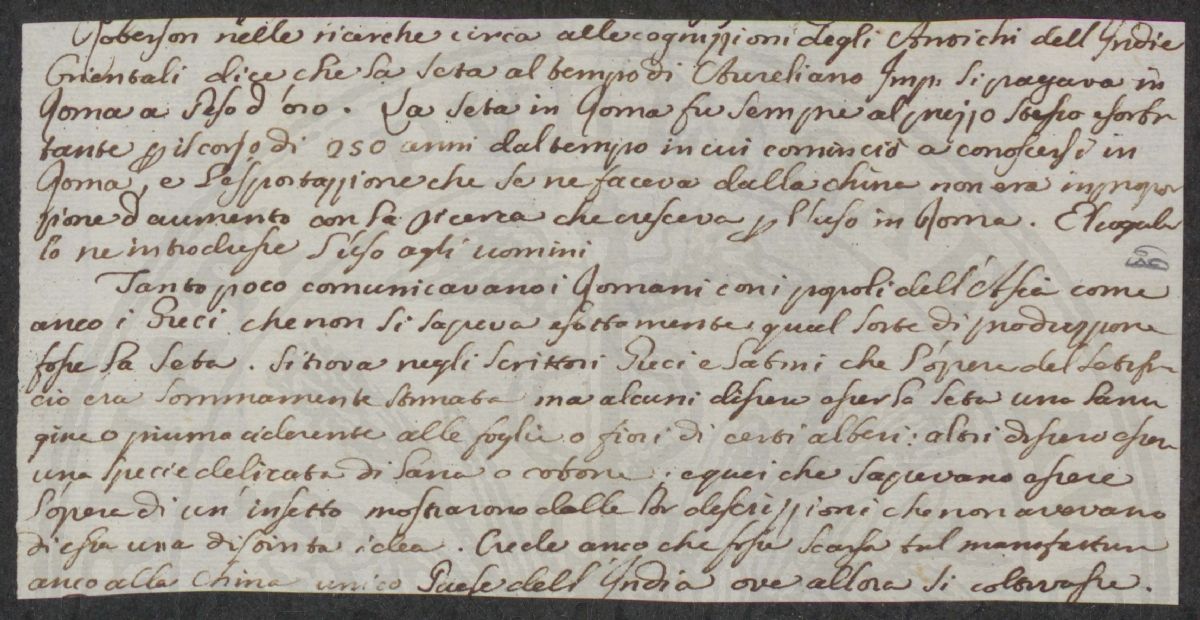 Roberson nelle ricerche circa alle cognizzioni degli Antichi dell'Indie
Orientali dice che la seta al tempo di Aureliano Imp. si pagava in
Roma a peso d'oro. La seta in Roma fu sempre al prezzo stesso esorbi
tante p il corso di 250 anni dal tempo in cui cominciò a conoscersi in
Roma, e l'esportazzione che se ne faceva dalla china non era in propor
zione d'aumento con la ricerca che cresceva p l'uso in Roma.
lo ne introdusse l'uso agli uomini
Tanto poco comunicavano i Romani con i popoli dell'Asia come
anco i Greci che non si sapeva esattamente qual sorte di produzzione
fosse la seta. Si trova negli scrittori Greci e Latini che l'opera del setifi
cio era sommamente stimata ma alcuni disero esser la seta una lanu
gine o piuma aderente alle foglie o fiori di certi alberi; altri disero essere
una specie delicata di lana o cotone; e quei che sapevano essere
l'opera di un insetto mostrarono dalle lor descrizzioni che non avevano
di essa una distinta idea. Crede anco che fosse scarsa tal manifattura
anco alla China unico Paese dell'India ove allora si coltivasse.